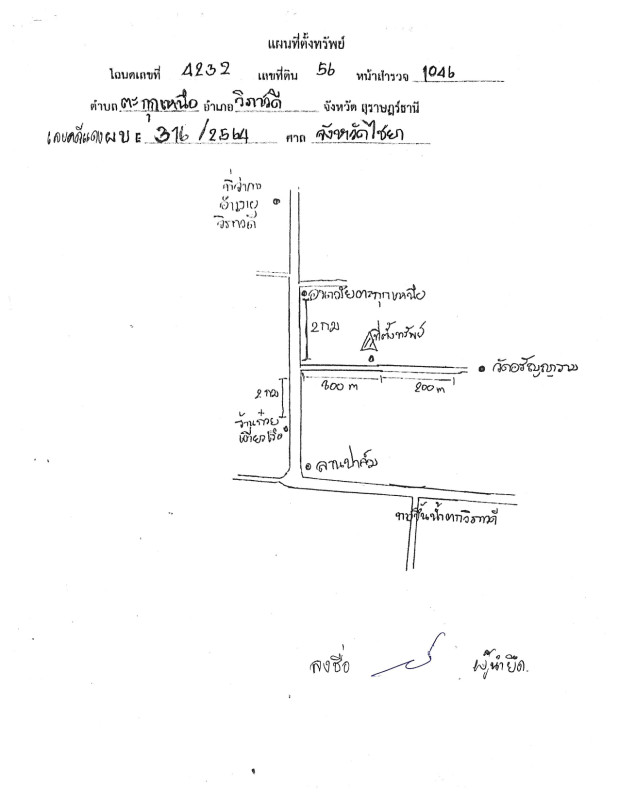 แผนที่ตั้งทรัพย์
โฉนดเลขที่ 4232 เลขที่ดิน 56 หน้าสำรวจ 1046
ตำบล ตะกุกเหนือ อำเภอ วิภาวดี จังหวัด สุราษฎร์ธานี
เลขคดีแดง ผบE 316/2564 ศาล จังหวัดไชยา
ที่ว่าการ
อำเภอ
วิภาวดี
อนามัยตะกุกเหนือ
2 กม
ที่ตั้งทรัพย์
วัดอรัญญาราม
300 m
200 m
2 กม
ร้านก๋วย
เตี๋ยวเรือ
ลานปาล์ม
ทางขึ้นน้ำตกวิภาวดี
ลงชื่อ ผู้นำยึด.